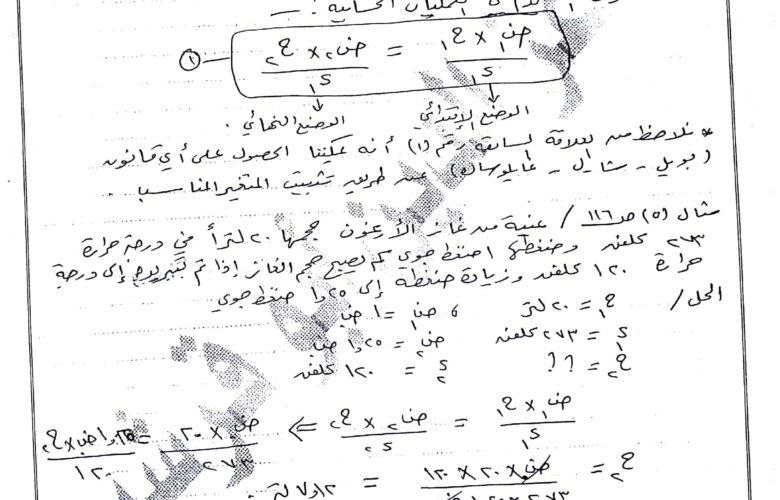 للعمليات الحسابية : -
ض١ × ح١ / د١ = ض٢ × ح٢ / د١ ـ ①
الوضع الإبتدائي الوضع النهائي .
* نلاحظ من العلاقة السابقة رقم (١) أنه يمكننا الحصول على أي قانون
( بويل - شارل - غايلوساك ) عن طريق تثبيت المتغير المناسب .
مثال (٥) ص ١١٦ / عينة من غاز الأرغون حجمها ٢٠ لتراً في درجة حرارة
٢٧٣ كلفن وضغطها ١ ضغط جوي كم يصبح حجم الغاز إذا تم تبريده إلى درجة
حرارة ١٢٠ كلفن وزيادة ضغطه إلى ١,٢٥ ضغط جوي
الحل / ح١ = ٢٠ لتر ، ض١ = ١ ض
د١ = ٢٧٣ كلفن ض٢ = ١,٢٥ ض
ح٢ = ؟؟ د٢ = ١٢٠ كلفن
ض١ × ح١ / د١ = ض٢ × ح٢ / د٢ ⇐ ض × ٢٠ / ٢٧٣ = ١,٢٥ ض × ح٢ / ١٢٠
ح٢ = ض × ٢٠ × ١٢٠ / ٢٧٣ × = ٧,١٢ لتر .